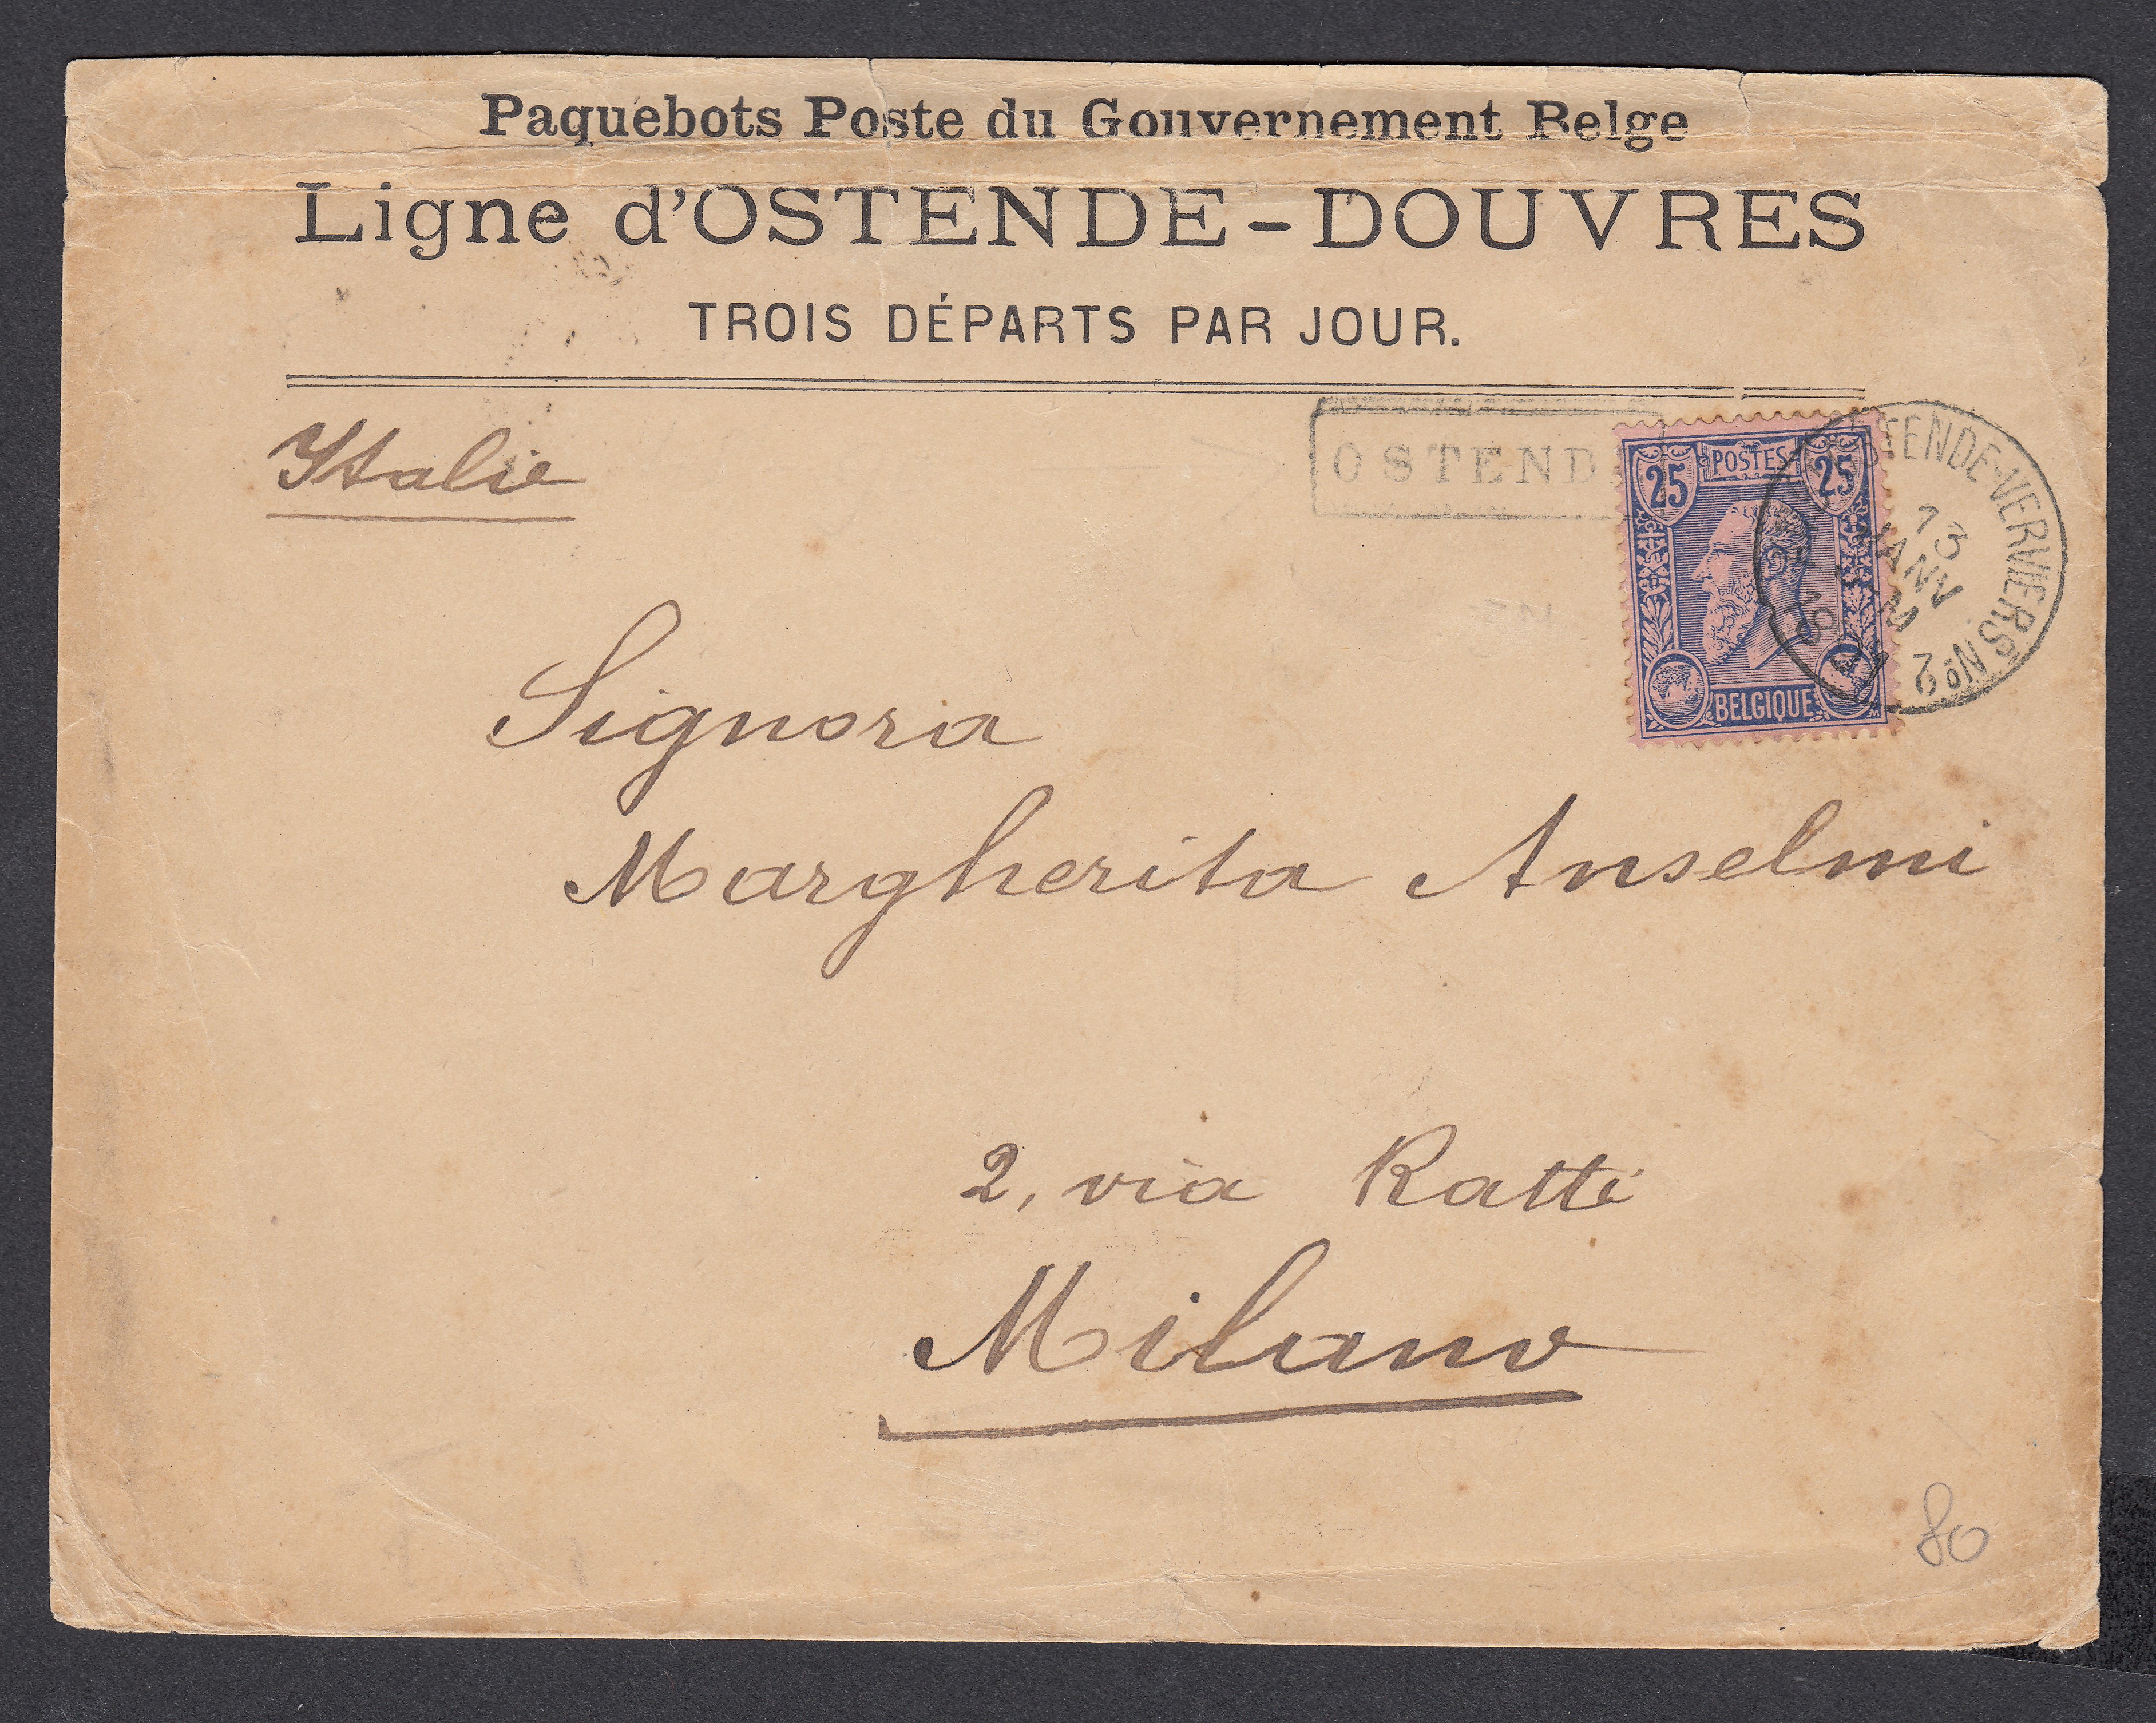 Paquebots Poste du Gouvernement Belge
Ligne d'OSTENDE-DOUVRES
TROIS DÉPARTS PAR JOUR.
Italie
OSTEND
25 POSTES 25
BELGIQUE
TENDE-VERVIERS No 2
13
JANV
Signora
Margherita Anselmi
2, via Ratti
Milano
80